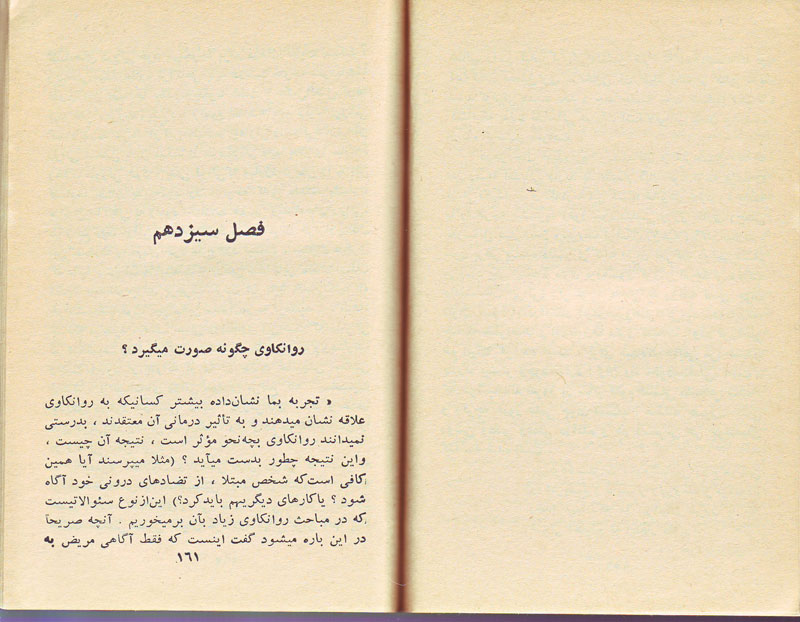 فصل سیزدهم
روانکاوی چگونه صورت میگیرد ؟
« تجربه بما نشان‌داده بیشتر کسانیکه به روانکاوی
علاقه نشان میدهند و به تأثیر درمانی آن معتقدند ، بدرستی
نمیدانند روانکاوی بچه‌نحو مؤثر است ، نتیجه آن چیست ،
واین نتیجه چطور بدست میآید ؟ (مثلا میپرسند آیا همین
کافی است‌که شخص مبتلا ، از تضادهای درونی خود آگاه
شود ؟ یاکارهای دیگریهم بایدکرد؟) این‌ازنوع سئوالاتیست
که در مباحث روانکاوی زیاد بآن برمیخوریم . آنچه صریحاً
در این باره میشود گفت اینست که فقط آگاهی مریض به
۱۶۱